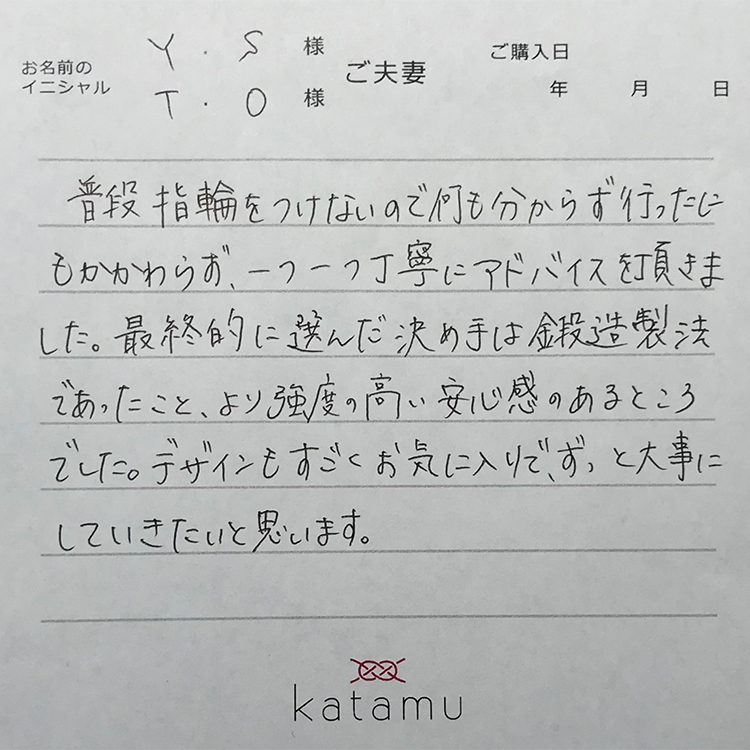 お名前の
イニシャル
Y・S 様
T・O 様
ご夫妻
ご購入日
年 月 日
普段指輪をつけないので何も分からず行ったに
もかかわらず、一つ一つ丁寧にアドバイスを頂きま
した。最終的に選んだ決め手は鍛造製法
であったこと、より強度の高い安心感のあるところ
でした。デザインもすごくお気に入りで、ずっと大事に
していきたいと思います。
katamu